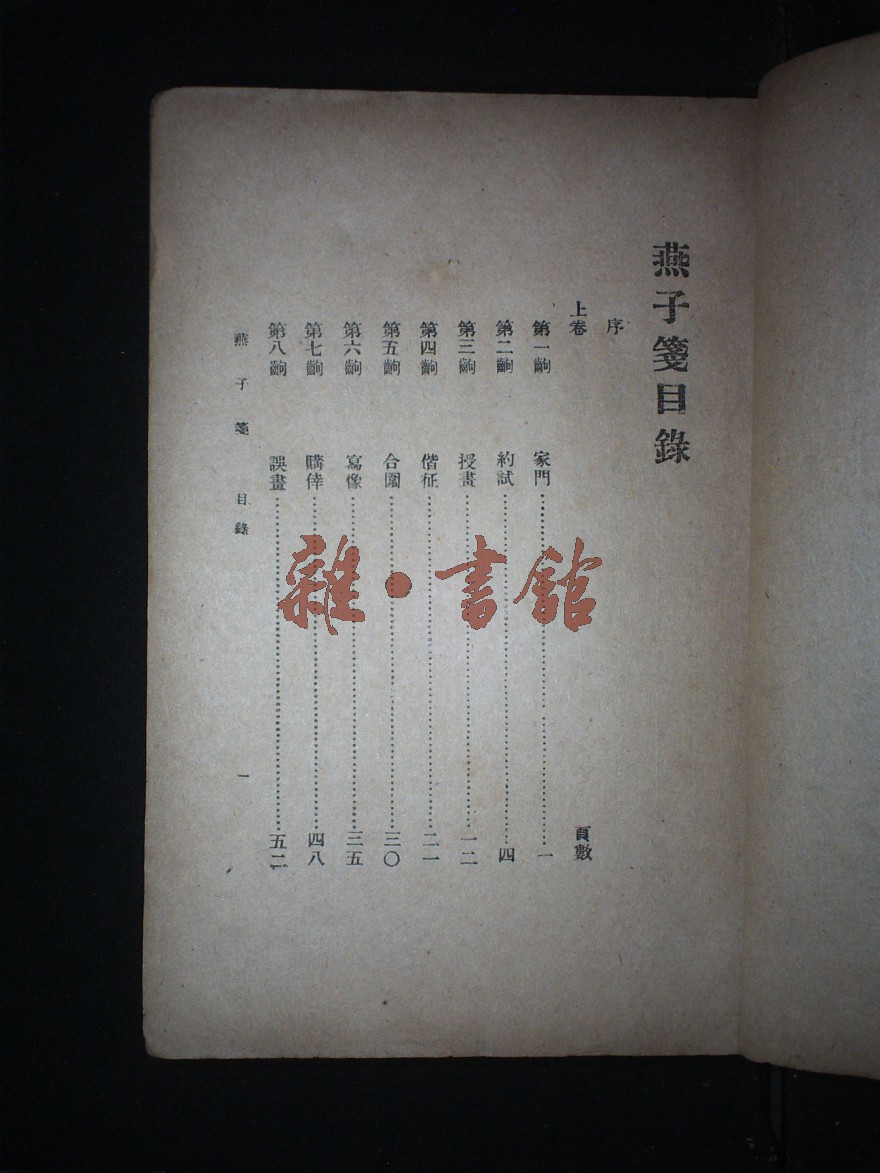 燕子箋目錄
序
上卷 頁數
第一齣 家門 一
第二齣 約試 四
第三齣 授畫 一二
第四齣 偕征 二一
第五齣 合圍 三〇
第六齣 寫像 三五
第七齣 購倖 四八
第八齣 誤畫 五二
燕子箋 目錄 一
雜·書館